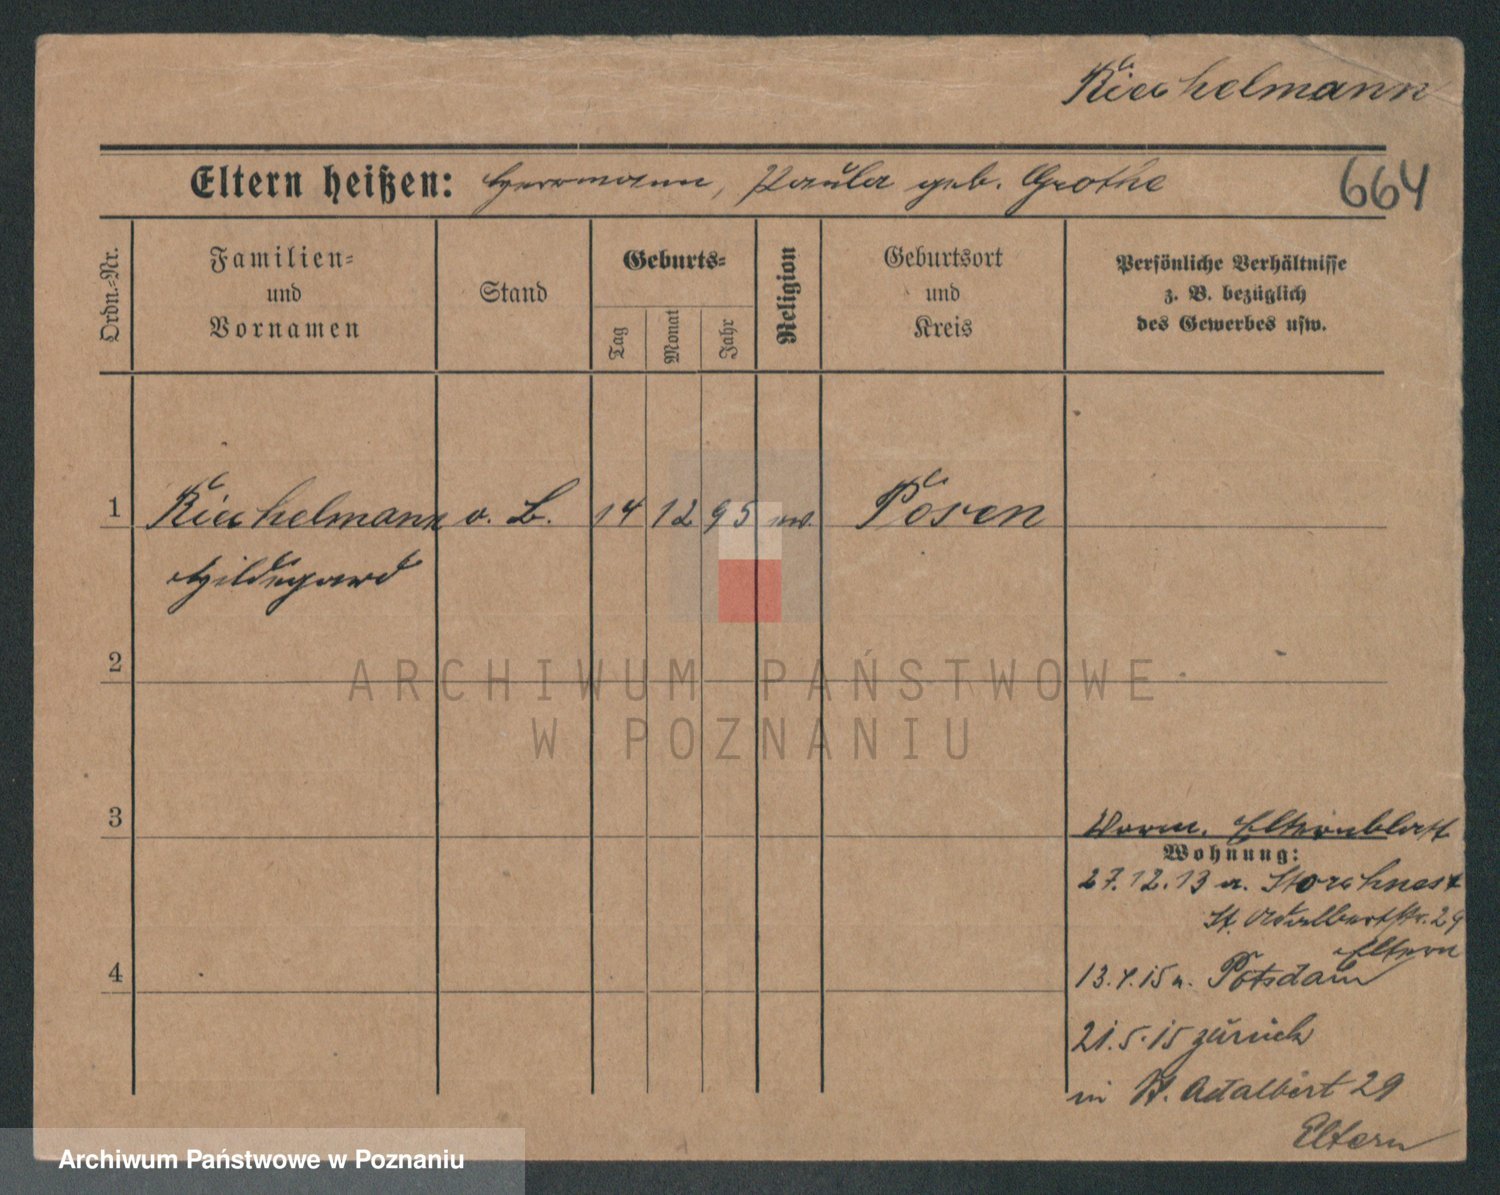 Riechelmann
Eltern heißen: Herrmann, Paula geb. Grothe
664
Ordn.-Nr.
Familien-
und
Vornamen
Stand
Geburts-
Tag
Monat
Jahr
Religion
Geburtsort
und
Kreis
Persönliche Verhältnisse
z. B. bezüglich
des Gewerbes usw.
1 Riechelmann o. B. 14 12 95 ev. Posen
Hildegard
2
ARCHIWUM PAŃSTWOWE
W POZNANIU
3
Elternblatt
Wohnung:
27.12.13 n. Storchnest
St. Adalbertstr. 29
Eltern
4
13.4.15 n. Potsdam
21.5.15 zurück
in St. Adalbert 29
Eltern
Archiwum Państwowe w Poznaniu